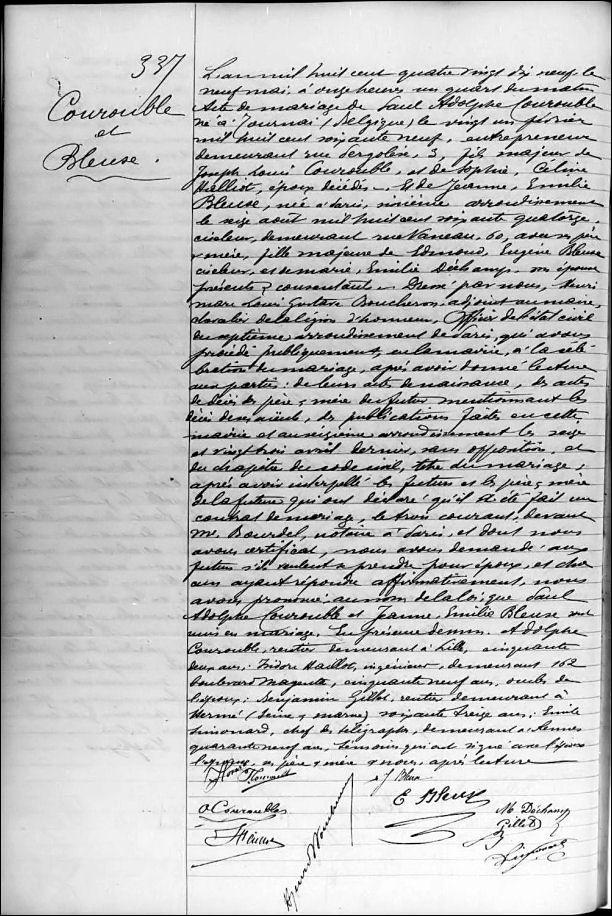 337
Courouble
et
Bleuse.
L'an mil huit cent quatre vingt dix neuf, le
neuf mai, à onze heures un quart du matin
Acte de mariage de Paul Adolphe Courouble
né à Tournai (Belgique) le vingt un février
mil huit cent soixante neuf, entrepreneur
demeurant rue Pergolèse, 3, fils majeur de
Joseph Louis Courouble, et de Sophie, Céline
Halliot, époux décédés. Et de Jeanne, Emilie
Bleuse, née à Paris, arrondissement
le seize août mil huit cent soixante quatorze,
ciseleur, demeurant rue Vaneau, 60, avec ses père
& mère, fille majeure de Edmond, Eugène Bleuse
ciseleur, et de Marie, Emilie Déchamp, son épouse
présents & consentants. Dressé par nous, Henri
Marc Louis Gustave Boucheron, adjoint au maire,
chevalier de la légion d'honneur, Officier de l'état civil
du septième arrondissement de Paris, qui avons
procédé publiquement, en la mairie, à la célé
bration du mariage, après avoir donné lecture
aux parties: de leurs actes de naissance, des actes
de décès des père & mère du futur mentionnant les
décès des aïeuls, des publications faites en cette
mairie et au seizième arrondissement les seize
et vingt trois avril dernier, sans opposition, et
du chapitre du code civil, titre du mariage,
après avoir interpellé les futurs et les père & mère
de la future qui ont déclaré qu'il a été fait un
contrat de mariage, le trois courant, devant
Me. Bourdel, notaire à Paris, et dont nous
avons certificat, nous avons demandé aux
futurs s'ils veulent se prendre pour époux, et cha
cun ayant répondu affirmativement, nous
avons prononcé au nom de la loi, que Paul
Adolphe Courouble et Jeanne Emilie Bleuse sont
unis en mariage. En présence de mm. Adolphe
Courouble, rentier demeurant à Lille, cinquante
deux ans; Isidore Halliot, ingénieur, demeurant 162
boulevard Magenta, cinquante neuf ans, oncles de
l'époux; Benjamin Gillot, rentier demeurant à
Hermé (Seine & Marne) soixante treize ans; Emile
Simonard, chef de télégraphe, demeurant à
quarante neuf ans, témoins qui ont signé avec l'époux
l'épouse, ses père & mère & nous, après lecture
J Bleuse
E Bleuse
A Courouble
M. Déchamp
Gillot